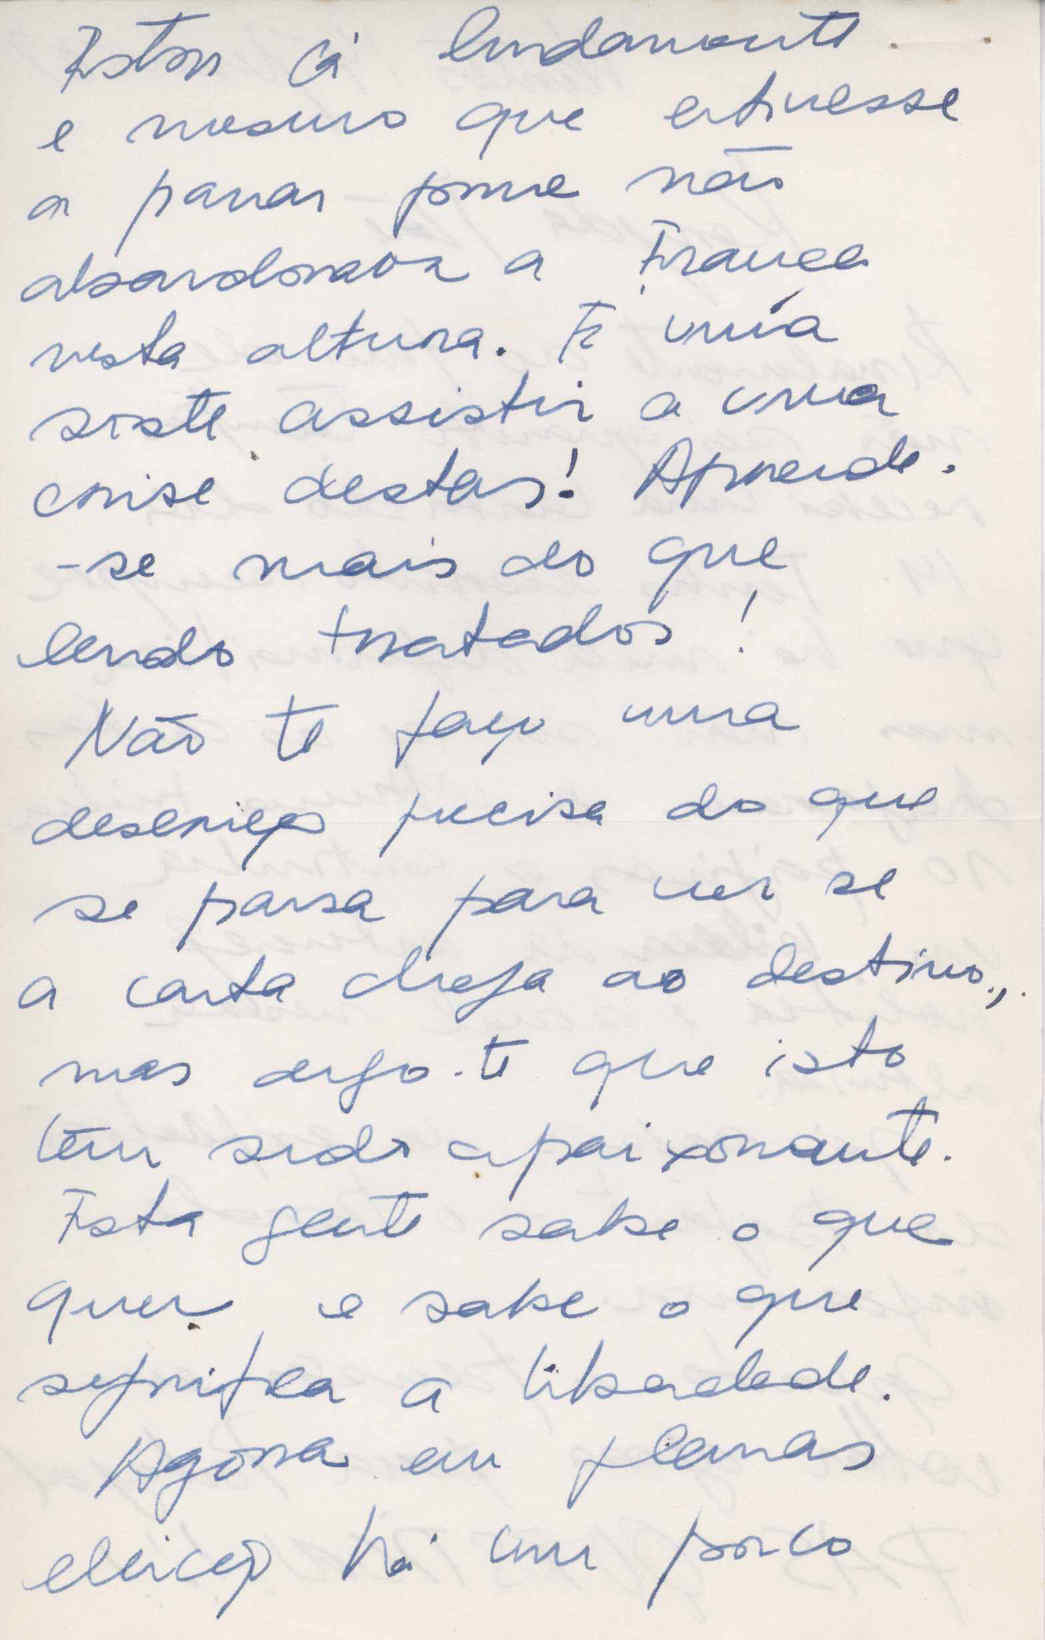 Estou cá lindamente
e mesmo que estivesse
a passar fome não
abandonava a França
nesta altura. É uma
sorte assistir a uma
crise destas! Aprende-
-se mais do que
lendo tratados!
Não te faço uma
descrição precisa do que
se passa para ver se
a carta chega ao destino,
mas digo-te que isto
tem sido apaixonante.
Esta gente sabe o que
quer e sabe o que
significa a liberdade.
Agora em plenas
eleições há um pouco